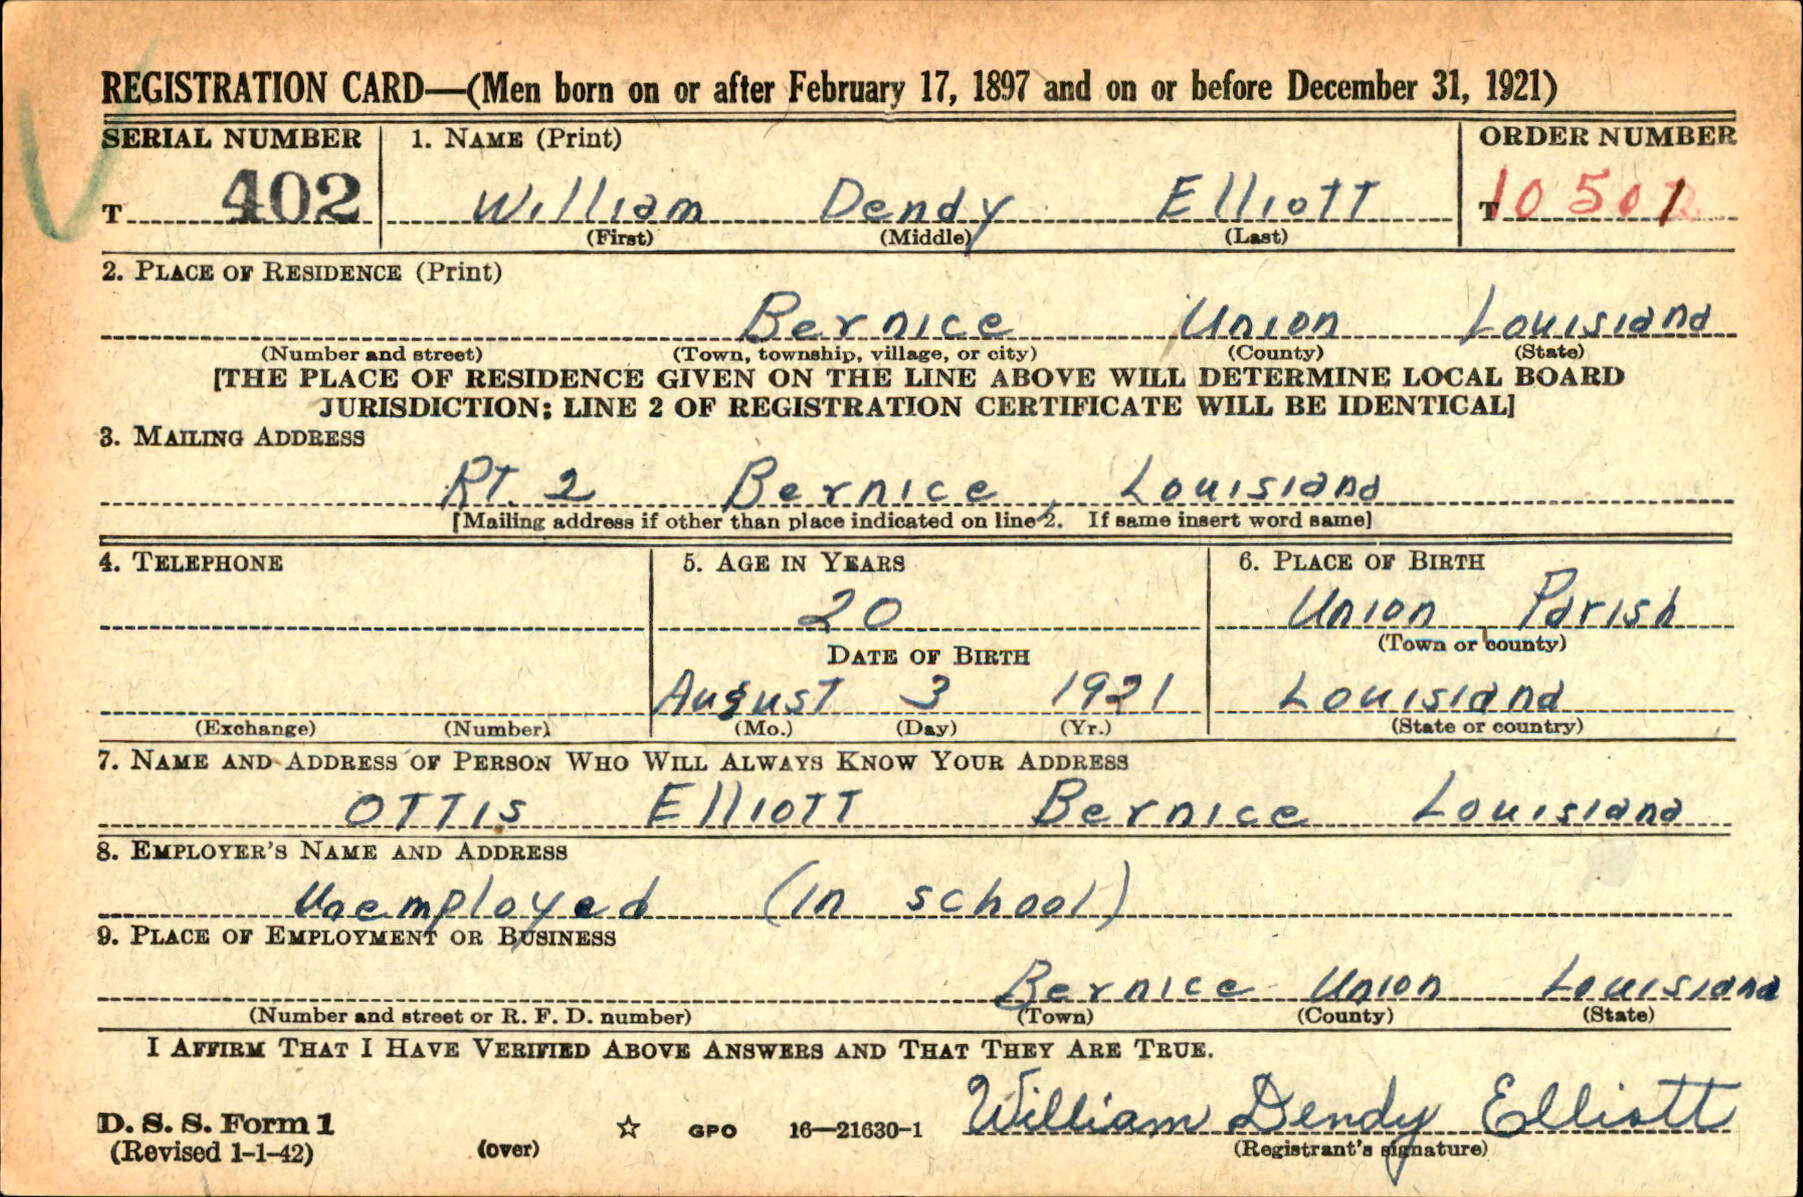 REGISTRATION CARD—(Men born on or after February 17, 1897 and on or before December 31, 1921)
SERIAL NUMBER 1. NAME (Print) ORDER NUMBER
T 402 William Dendy Elliott T 10 501
(First) (Middle) (Last)
2. PLACE OF RESIDENCE (Print)
Bernice Union Louisiana
(Number and street) (Town, township, village, or city) (County) (State)
[THE PLACE OF RESIDENCE GIVEN ON THE LINE ABOVE WILL DETERMINE LOCAL BOARD
JURISDICTION; LINE 2 OF REGISTRATION CERTIFICATE WILL BE IDENTICAL]
3. MAILING ADDRESS
RT. 2 Bernice, Louisiana
[Mailing address if other than place indicated on line 2. If same insert word same]
4. TELEPHONE 5. AGE IN YEARS 6. PLACE OF BIRTH
20 Union Parish
DATE OF BIRTH (Town or county)
August 3 1921 Louisiana
(Exchange) (Number) (Mo.) (Day) (Yr.) (State or country)
7. NAME AND ADDRESS OF PERSON WHO WILL ALWAYS KNOW YOUR ADDRESS
OTTIS Elliott Bernice Louisiana
8. EMPLOYER'S NAME AND ADDRESS
Unemployed (in school)
9. PLACE OF EMPLOYMENT OR BUSINESS
Bernice Union Louisiana
(Number and street or R. F. D. number) (Town) (County) (State)
I AFFIRM THAT I HAVE VERIFIED ABOVE ANSWERS AND THAT THEY ARE TRUE.
D. S. S. Form 1 GPO 16—21630-1 William Dendy Elliott
(Revised 1-1-42) (over) (Registrant's signature)